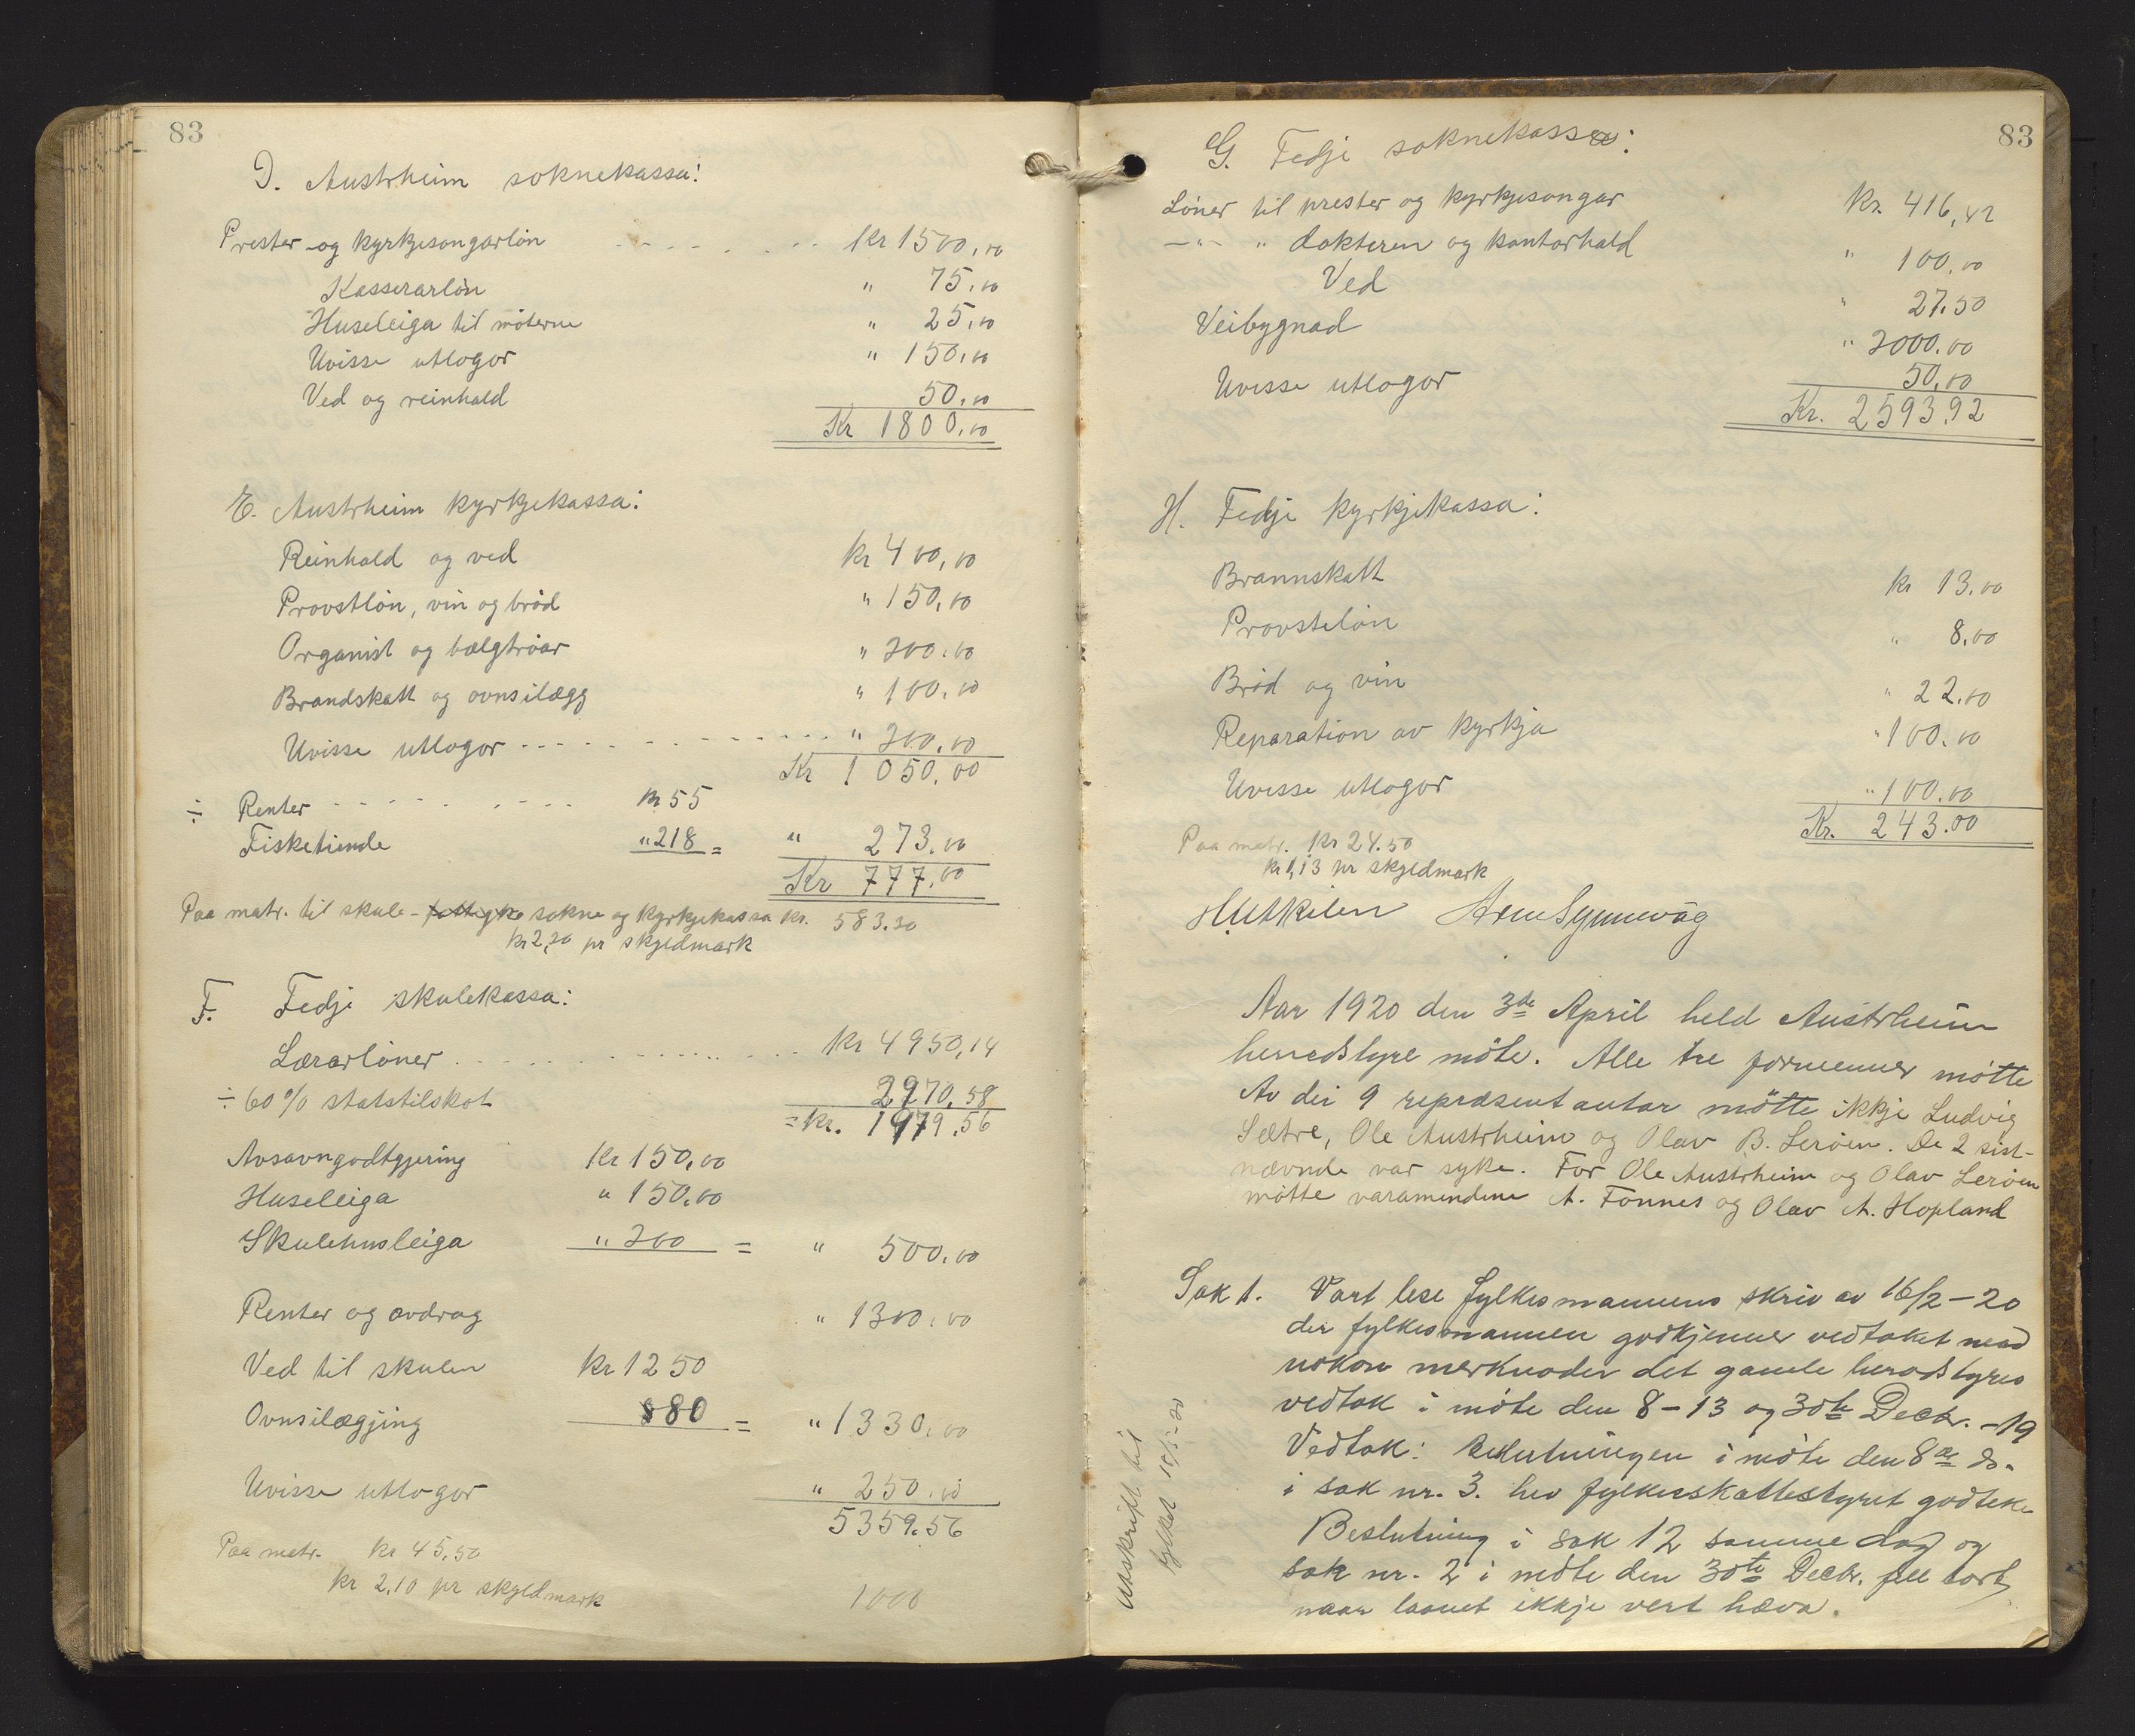 83
D. Austrheim soknekassa:
Prester- og kyrkjesongarløn - - - - - - Kr 1500,00
Kasserarløn " 75,00
Huseleiga til møterne " 25,00
Uvisse utlogor " 150,00
Ved og reinhald 50,00
Kr 1800,00
E. Austrheim kyrkjekassa:
Reinhald og ved Kr 400,00
Provstløn, vin og brød " 150,00
Organist og bælgtrøar " 200,00
Brandskatt og ovnsilægg " 100,00
Uvisse utlogor - - - - - - - - - - " 200,00
Kr 1050,00
÷ Renter - - - - - - - - - kr 55
Fisketiende " 218 = " 273,00
Kr 777,00
Paa matr. til skule- sokne og kyrkjekassa kr. 583.20
kr 2,20 pr skyldmark
F. Fedje skulekassa:
Lærarløner - - - - - - - - - - Kr 4950,14
÷ 60 % statstilskot 2970,58
= Kr. 1979,56
Avsavngodtgjering Kr 150,00
Huseleiga " 150,00
Skulehusleiga " 200 = " 500,00
Renter og avdrag " 1300,00
Ved til skulen Kr 1250
Ovnsilægjing 80 = " 1330,00
Uvisse utlogor " 250,00
5359,56
Paa matr. kr 45,50
kr 2,10 pr skyldmark
1000
83
G. Fedje soknekassa:
Løner til prester og kyrkjesongar Kr. 416,42
-"- " dokteren og kontorhald " 100,00
Ved " 27,50
Veibygnad " 2000,00
Uvisse utlogor 50,00
Kr. 2593,92
H. Fedje kyrkjekassa:
Brannskatt Kr 13,00
Provsteløn " 8,00
Brød og vin " 22,00
Reparation av kyrkja " 100,00
Uvisse utlogor " 100,00
Kr. 243,00
Paa matr. Kr 24.50
kr 1,13 pr skyldmark
H. Utkilen Arne Synnevåg
Aar 1920 den 3de April held Austrheim
heredstyre møte. Alle tre formenner møtte
Av dei 9 repræsentantar møtte ikkje Ludvig
Sætre, Ole Austrheim og Olav B. Lerøen. De 2 sist-
nævnde var syke. For Ole Austrheim og Olav Lerøen
møtte varamendene A. Fonnes og Olav A. Hopland
Sak 1. Vart lese fylkesmannens skriv av 16/2-20
der fylkesmannen godkjenner vedtaket med
nokon merknader det gamle heredstyres
vedtak i møte den 8-13 og 30te Decbr. -19
Vedtak: Beslutningen i møte den 8de ds.
i sak nr. 3. hev fylkesskattestyret godteke
Beslutning i sak 12 samme dag og
sak nr. 2 i møte den 30te Decbr. fell bort
naar laanet ikkje vert hæva.
Utskrift til
fylket